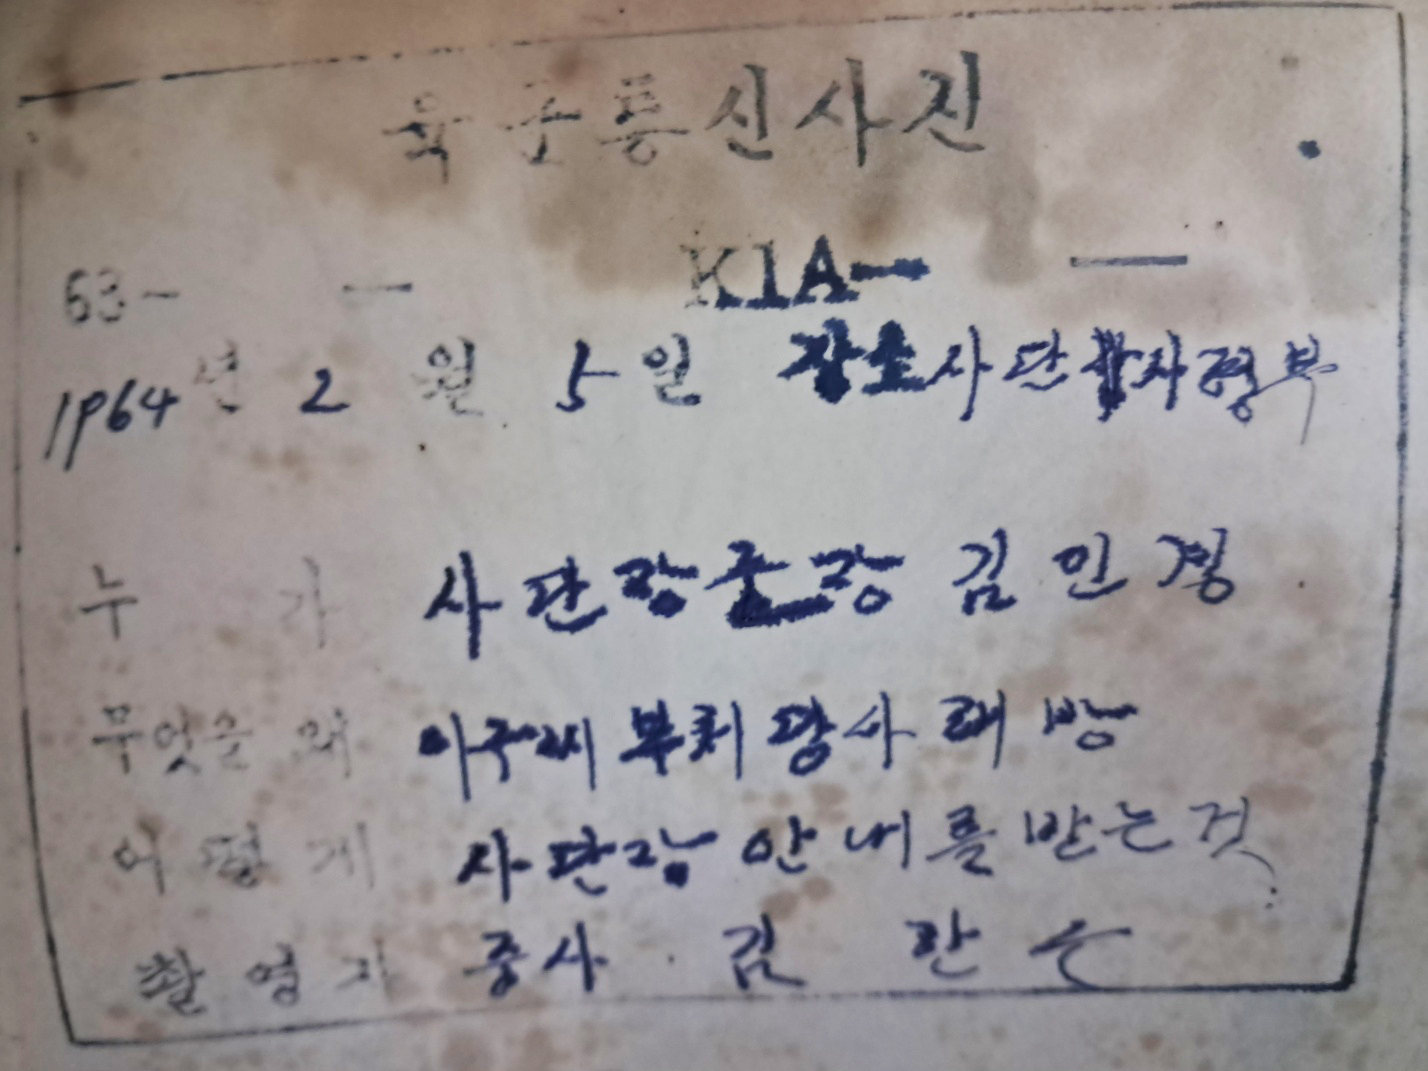 육군통신사진
63- — KIA- —
1964년 2 월 5 일 장소 사단 사령부
누 가 사단장 김 인 경
무엇을 왜 부처 당사 래 방
어 떻 게 사단장 안 내 를 받 는 것
촬 영 자 중사 . 김 란